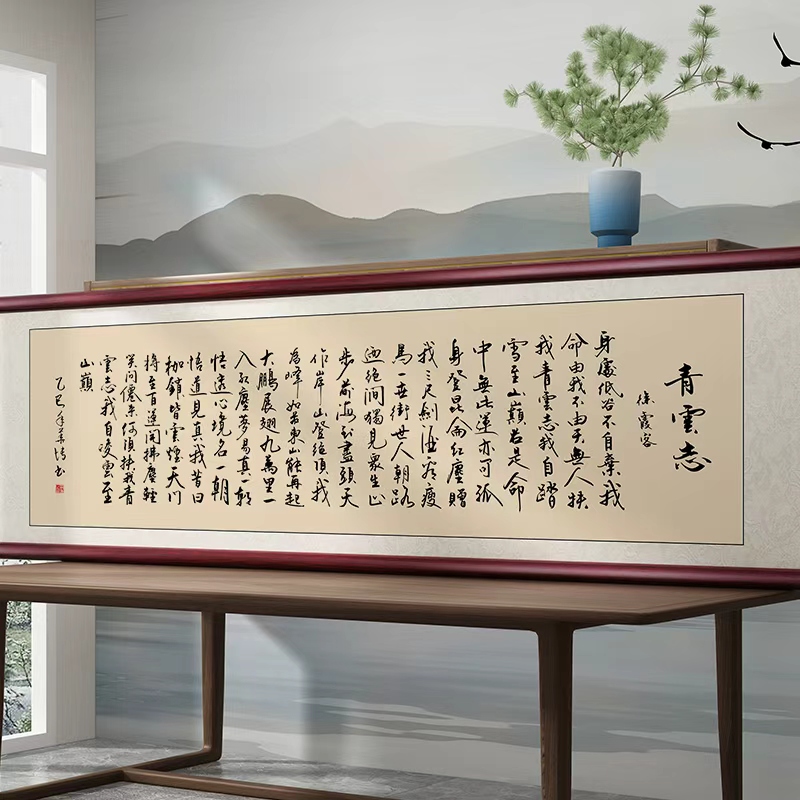 青雲志
徐霞客
身處低谷不自棄我
命由我不由天無人扶
我青雲志我自踏
雪至山巔若是命
中無此運亦可孤
身登昆侖紅塵贈
我三尺劍酒瘦
馬一壺世人朝
絕間獨見眾生
步前海到盡頭天
作岸山登絕頂我
為峰如若東山能再起
大鵬展翅九萬里一
入紅塵參易真一朝
悟透心境名一朝
悟道見真我昔日
枷鎖皆雲煙天門
將至百運開拂塵輕
笑問僊何須扶我青
雲志我自凌雲至
山巔
乙巳年書